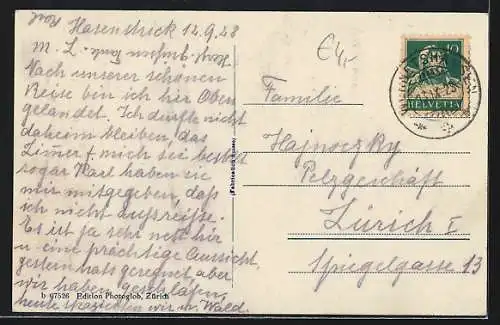 Hasenstrick 12.9.28
M. L.
Nach unserer schönen
Reise bin ich hier Oben
gelandet. Ich durfte nicht
daheim bleiben, das
Zimer f. mich sei bestellt
sogar Karl haben sie
mir mitgegeben, daß
ich nicht ausreiße.
Es ist ja sehr nett hier
u eine prächtige Aussicht
gestern hats geregnet aber
wir haben geschlafen,
heute spazierten wir n. Wald.
b 07526 Edition Photoglob, Zürich
€4,-
Familie
Hajnoczky
Pelzgeschäft
Zürich I
Spiegelgasse 13
10
HELVETIA